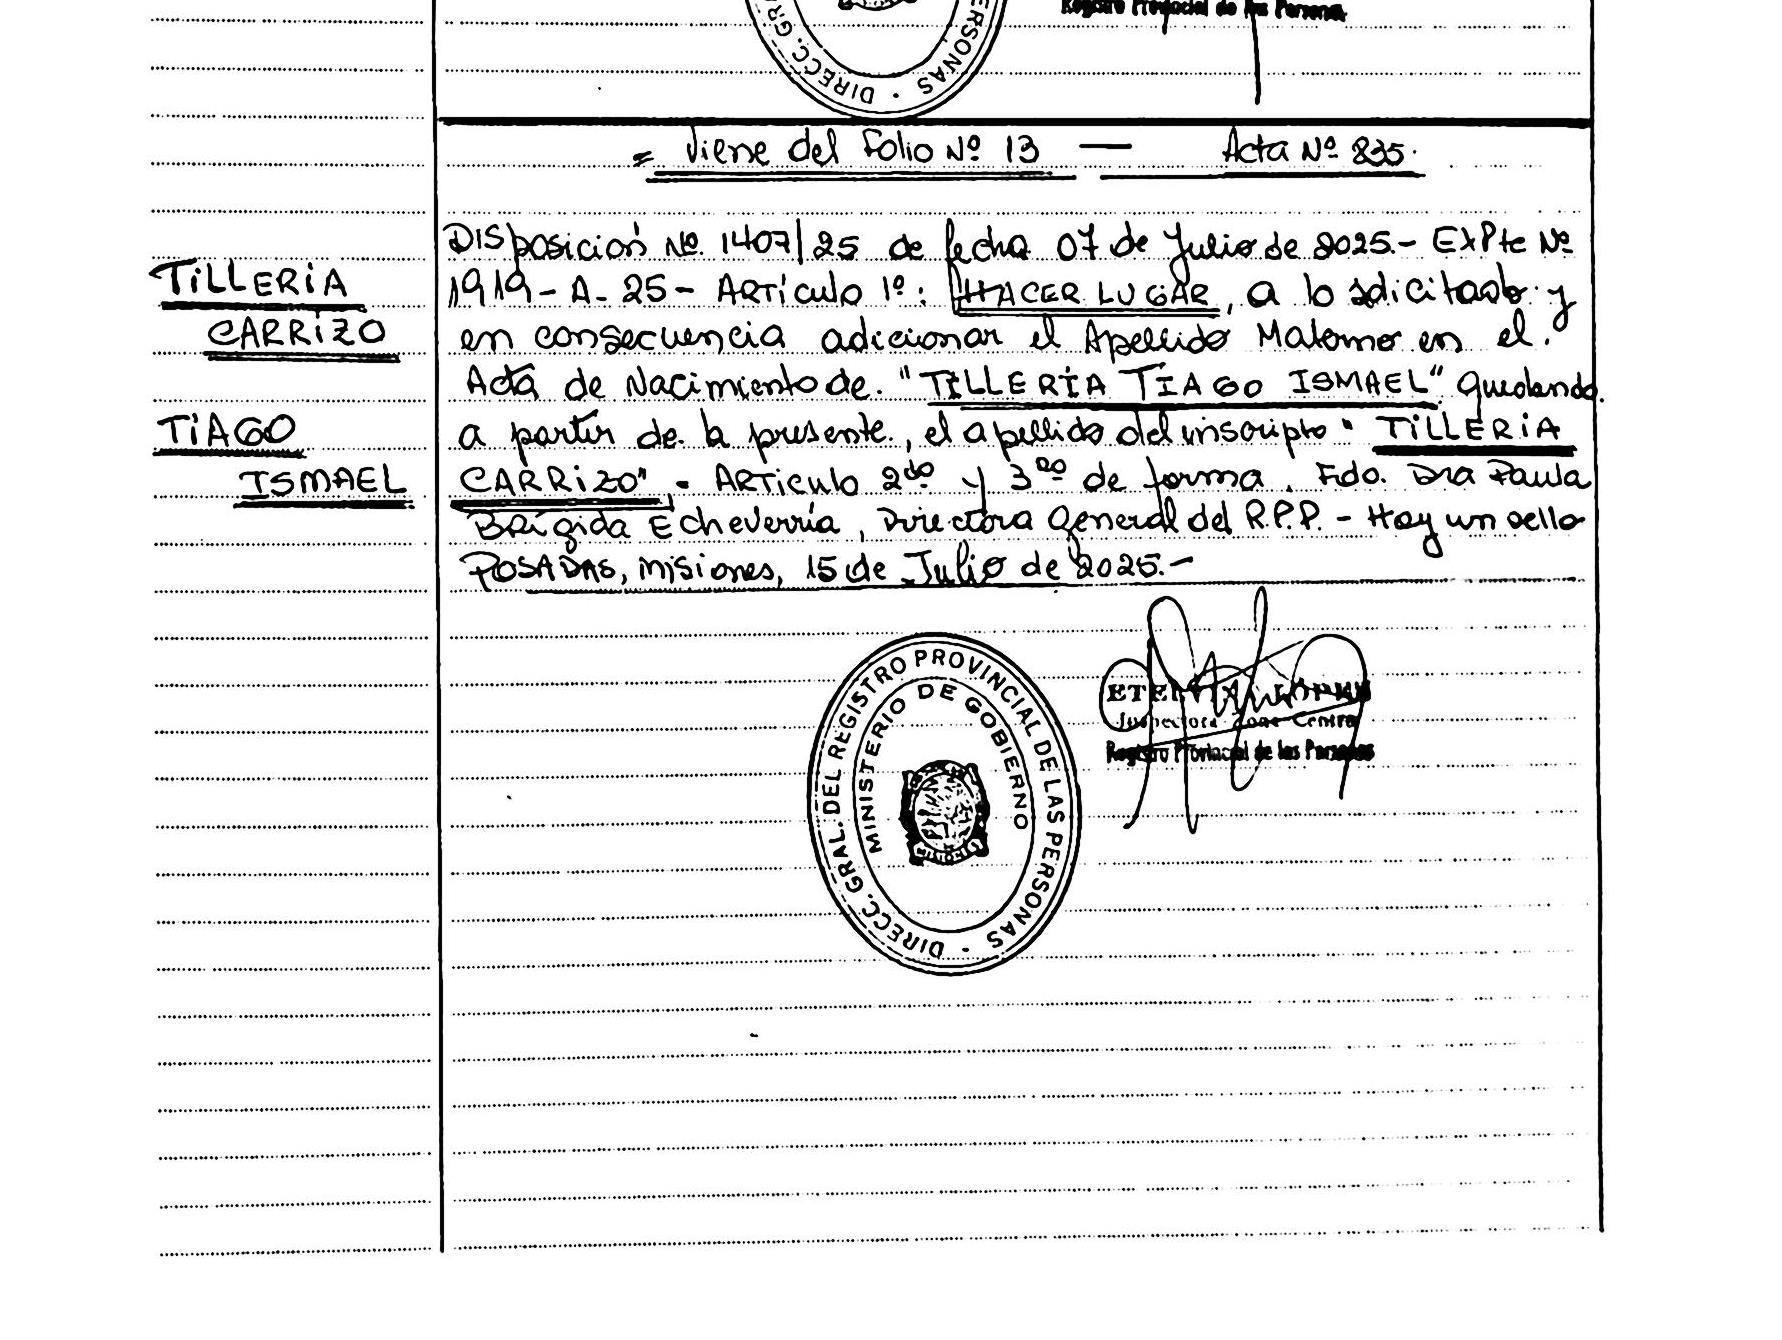 Registro Provincial de las Personas
DIRECC. GRA
ERSONAS
= Viene del Folio Nº 13 — Acta Nº 835.
TiLLERiA
CARRiZO
TiAGO
ISMAEL
DISposición Nº 1407/25 de fecha 07 de Julio de 2025.- EXPte Nº
1919- A- 25- ARTículo 1º: HACER LUGAR, a lo solicitado y
en consecuencia adicionar el Apellido Materno en el.
Acta de Nacimiento de. "TILLERIA TIAGO ISMAEL" quedando.
a partir de la presente, el apellido del inscripto "TiLLERiA
CARRiZO". ARTiculo 2do y 3ro de forma. Fdo. Dra Paula
Brígida Echeverría, Directora General del R.P.P. - Hay un sello
POSADAS, Misiones, 15 de Julio de 2025.-
DIRECC. GRAL. DEL REGISTRO PROVINCIAL DE LAS PERSONAS
MINISTERIO DE GOBIERNO
Inspectora Zona Centro
Registro Provincial de las Personas